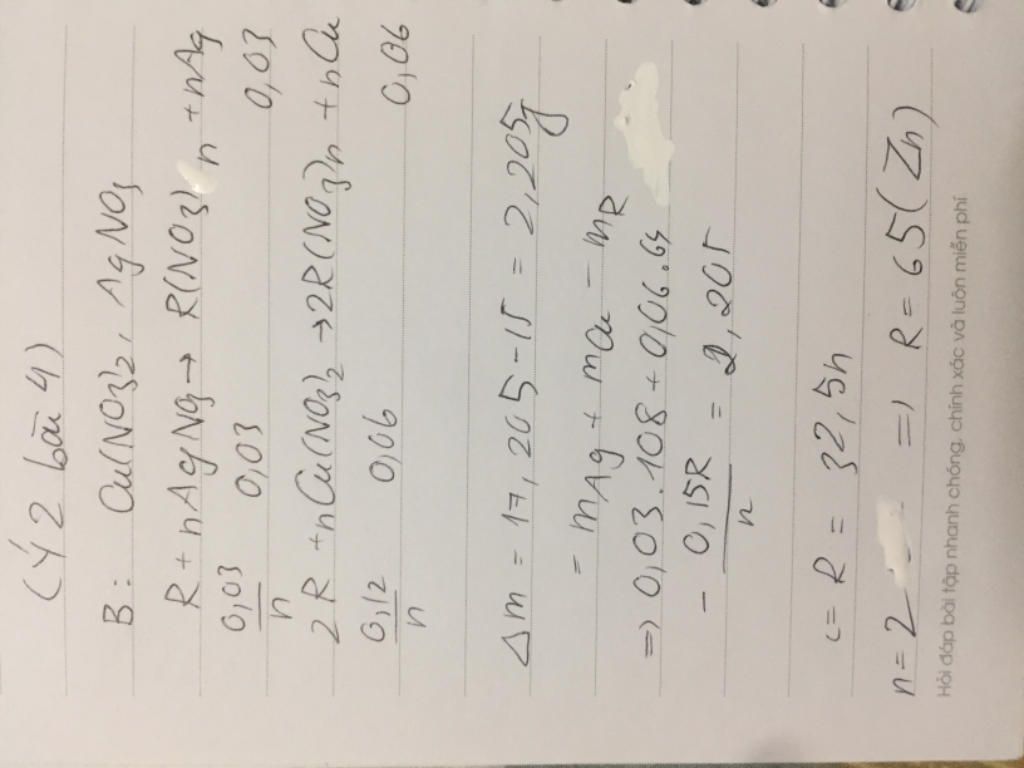 (ý 2 bài 4)
B: Cu(NO3)2, AgNO3
R + nAgNO3 → R(NO3)n + nAg
0,03/n 0,03 0,03
2R + nCu(NO3)2 → 2R(NO3)n + nCu
0,12/n 0,06 0,06
Δm = 17,205 - 15 = 2,205g
= mAg + mCu - mR
=> 0,03.108 + 0,06.64
- 0,15R/n = 2,205
<=> R = 32,5n
n = 2 => R = 65 (Zn)
Hỏi đáp bài tập nhanh chóng, chính xác và luôn miễn phí